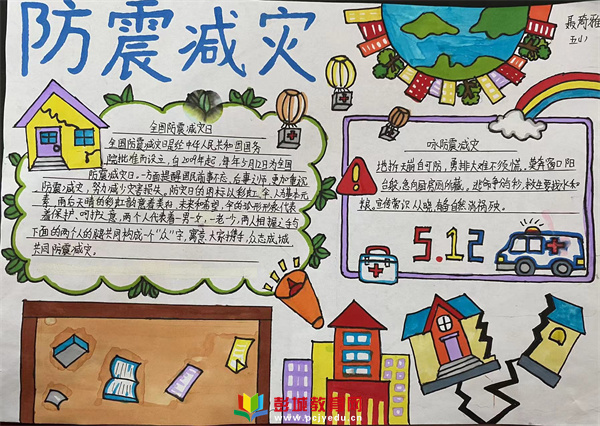 防震减灾
聂荷雅
五小
全国防震减灾日
全国防震减灾日是经中华人民共和国国务
院批准而设立,自2009年起,每年5月12日为全国
防震减灾日。一方面提醒国民前事不忘,后事之师,更加重视
防震减灾,努力减少灾害损失。防灾日的图标以彩虹、伞、人为基本元
素,雨后天晴的彩虹韵意着美好、未来和希望,伞的弧形形象代表
着保护、呵护之意,两个人代表着一男一女、一老一少,两人相握之手与
下面的两个人的腿共同构成一个"众"字,寓意大家携手,众志成城
共同防震减灾。
咏防震减灾
地拆天崩自可防,勇排大难不须慌。
5.12
彭城教育网
www.pcjyedu.cn